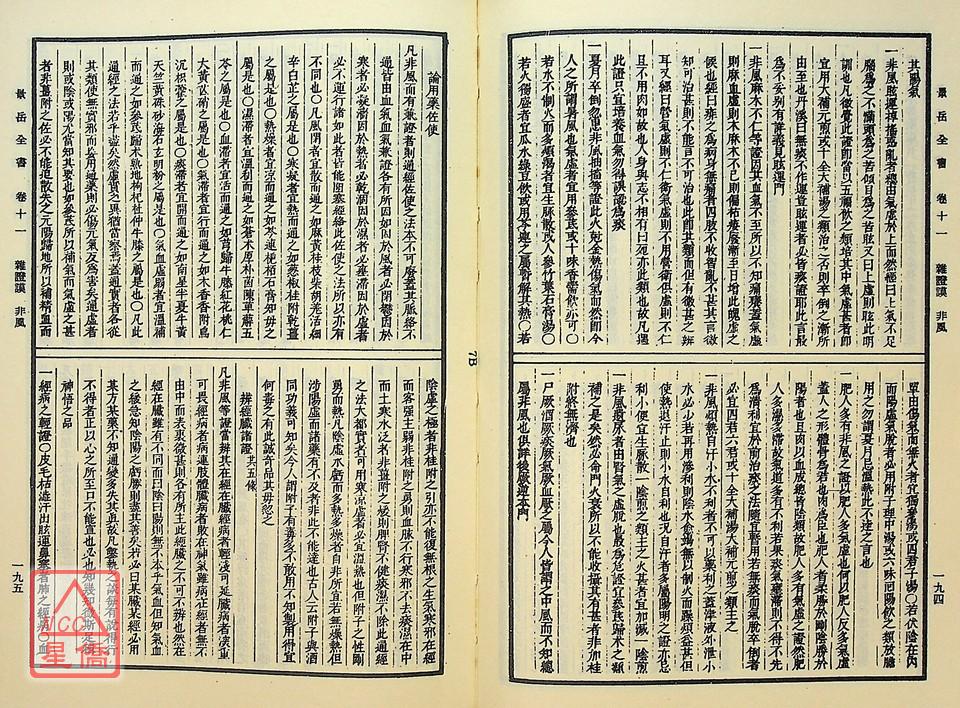 景岳全書 卷十一 雜證謨 非風
一九四
其陽氣
一非風眩運掉搖惑亂者總由氣虛於上而然經曰上氣不足
腦為之不滿頭為之苦傾目為之苦眩又曰上虛則眩此明
訓也凡微覺此證即當以五福飲之類培其中氣虛甚者即
宜用大補元煎或十全大補湯之類治之否則卒倒之漸所
由至也丹溪曰無痰不作運豈眩運者必皆痰證耶此言最
為不妥別有詳義見眩運門
一非風麻木不仁等證因其血氣不至所以不知痛癢蓋氣虛
則麻血虛則木麻木不已則偏枯痿廢漸至日增此魄虛之
候也經曰痱之為病身無痛者四肢不收智亂不甚其言微
知可治甚則不能言不可治也此即其類而但有微甚之辨
耳又經曰營氣虛則不仁衛氣虛則不用營衛俱虛則不仁
且不用肉如故也人身與志不相有曰死亦此類也故凡遇
此證只宜培養血氣勿得誤認為痰
一夏月卒倒忽患非風抽搐等證此火剋金熱傷氣而然即今
人之所謂暑風也氣虛者宜用參耆或十味香薷飲亦可〇
若水不制火而多煩渴者宜生脈散或人參竹葉石膏湯〇
若火獨盛者宜瓜水綠豆飲或用芩連之屬暫解其熱〇若
單由傷氣而無火者宜獨參湯或四君子湯〇若伏陰在內
而陽虛氣脫者必用附子理中湯或六味回陽飲之類放膽
用之勿謂夏月忌溫熱此不達之言也
一肥人多有非風之證以肥人多氣虛也何以肥人反多氣虛
蓋人之形體骨為君也肉為臣也肥人者柔勝於剛陰勝於
陽者也且肉以血成總皆陰類故肥人多有氣虛之證然肥
人多濕多滯故氣道多有不利若果痰氣壅滯則不得不先
為清利宜於前治痰之法隨宜暫用若無痰而氣脫卒倒者
必宜四君六君或十全大補湯大補元煎之類主之
一非風煩熱自汗小水不利者不可以藥利之蓋津液外泄小
水必少若再用滲利則陰水愈竭無以制火而躁煩益甚但
使熱退汗止則小水自利也況自汗者多屬陽明之證亦忌
利小便宜生脈散一陰煎之類主之火甚者宜加減一陰煎
一非風遺尿者由腎氣之虛脫也最為危證宜參耆歸朮之類
補之是矣然必命門火衰所以不能收攝其有甚者非加桂
附終無濟也
一尸厥酒厥痰厥氣厥血厥之屬今人皆謂之中風而不知總
屬非風也俱詳後厥逆本門
7B
景岳全書 卷十一 雜證謨 非風
一九五
論用藥佐使
凡非風而有兼證者則通經佐使之法本不可廢蓋其脈絡不
通皆由血氣血氣兼證各有所因如因於風者必閉鬱因於
寒者必凝澀因於熱者必乾涸因於濕者必壅滯因於虛者
必不運行諸如此者皆能阻塞經絡此佐使之法所以亦有
不同也〇凡風閉者宜散而通之如麻黃桂枝柴胡羌活細
辛白芷之屬是也〇寒凝者宜熱而通之如蔥椒桂附乾薑
之屬是也〇熱燥者宜涼而通之如芩連梔栢石膏知母之
屬是也〇濕滯者宜溫利而通之如蒼朮厚朴茵陳萆薢五
苓之屬是也〇血滯者宜活而通之如芎歸牛膝紅花桃仁
大黃芒硝之屬是也〇氣滯者宜行而通之如木香香附烏
沉枳藿之屬是也〇痰滯者宜開而通之如南星半夏牛黃
天竺黃硃砂海石玄明粉之屬是也〇氣血虛弱者宜溫補
而通之如參耆歸朮熟地枸杞杜仲牛膝之屬是也〇凡此
通經之法若乎盡矣然虛實之異猶當察焉蓋通實者各從
其類使無實邪而妄用通藥則必傷元氣反為害矣通虛者
則或陰或陽尤當知其要也如參耆所以補氣而氣虛之甚
者非薑附之佐必不能追散失之元陽歸地所以補精血而
陰虛之極者非桂附之引亦不能復無根之生氣寒邪在經
而客強主弱非桂附之勇則血脈不行寒邪不去痰濕在中
而土寒水泛者非薑附之煖則脾腎不健痰濕不除此通經
之法大都實者可用寒涼虛者必宜溫熱也但附子之性剛
勇而熱凡陰虛水虧而多熱多燥者自非所宜若無燥熱但
涉陽虛而諸藥有不及者非此不能達也古人云附子與酒
同功義可知矣今人謂附子有毒多不敢用不知製用得宜
何毒之有此誠奇品其毋忽之
辨經臟諸證 共五條
凡非風等證當辨其在經在臟經病者輕淺可延臟病者深重
可畏經病者病連肢體臟病者敗在神氣雖病在經者無不
由中而表裏微甚則各有所主此經臟之不可不辨也然在
經在臟雖有不同而曰陰曰陽則無不本乎氣血但知氣血
之緩急知陰陽之虧勝則盡其善矣若必曰某臟某經必用
某方某藥不知通變多失其真故凡鑿執之談每有說得行
不得者正以心之所至口不能宣也必也知幾知微斯是後
神悟之品
一經病之輕證〇皮毛枯澁汗出眩運鼻塞者肺之經病〇血